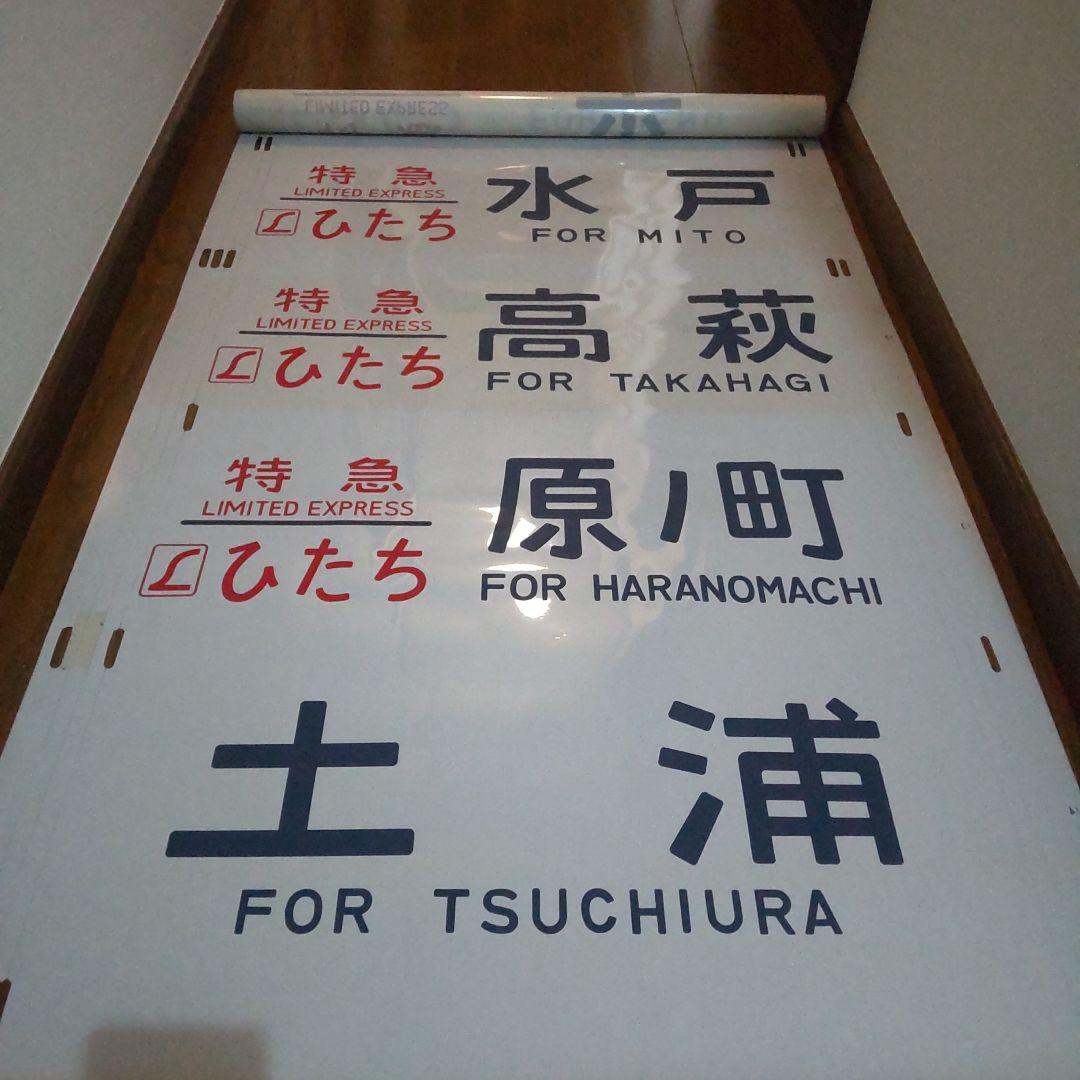 LIMITED EXPRESS
特急
LIMITED EXPRESS
Lひたち
水戸
FOR MITO
特急
LIMITED EXPRESS
Lひたち
高萩
FOR TAKAHAGI
特急
LIMITED EXPRESS
Lひたち
原ノ町
FOR HARANOMACHI
土浦
FOR TSUCHIURA